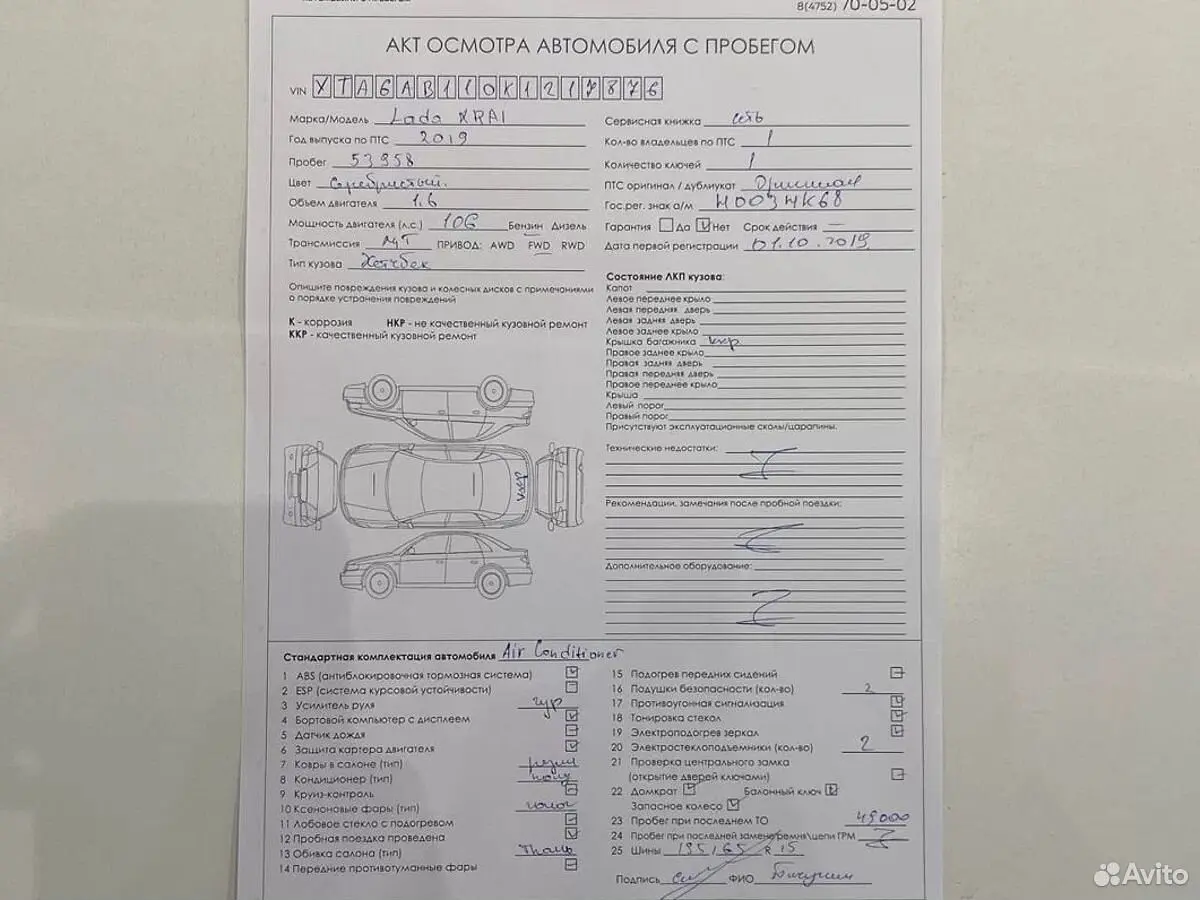 8(4752) 70-05-02
АКТ ОСМОТРА АВТОМОБИЛЯ С ПРОБЕГОМ
VIN XTAGAB110K1217876
Марка/Модель Lada XRAI
Год выпуска по ПТС 2019
Пробег 53958
Цвет Серебристый.
Объем двигателя 1.6
Мощность двигателя (л.с.) 106 Бензин Дизель
Трансмиссия МТ ПРИВОД: AWD FWD RWD
Тип кузова Хетчбек
Сервисная книжка есть
Кол-во владельцев по ПТС 1
Количество ключей 1
ПТС оригинал / дубликат Оригинал
Гос.рег. знак а/м Н003НК68
Гарантия Да Нет Срок действия —
Дата первой регистрации 01.10.2019
Опишите повреждения кузова и колесных дисков с примечаниями
о порядке устранения повреждений
К - коррозия НКР - не качественный кузовной ремонт
ККР - качественный кузовной ремонт
Состояние ЛКП кузова:
Капот
Левое переднее крыло
Левая передняя дверь
Левая задняя дверь
Левое заднее крыло
Крышка багажника ккр
Правое заднее крыло
Правая задняя дверь
Правая передняя дверь
Правое переднее крыло
Крыша
Левый порог
Правый порог
Присутствуют эксплуатационные сколы/царапины.
Технические недостатки:
Рекомендации, замечания после пробной поездки:
Дополнительное оборудование:
Стандартная комплектация автомобиля Air Conditioner
1 ABS (антиблокировочная тормозная система)
2 ESP (система курсовой устойчивости)
3 Усилитель руля гур
4 Бортовой компьютер с дисплеем
5 Датчик дождя
6 Защита картера двигателя
7 Ковры в салоне (тип) резин
8 Кондиционер (тип) конд
9 Круиз-контроль
10 Ксеноновые фары (тип)
11 Лобовое стекло с подогревом
12 Пробная поездка проведена
13 Обивка салона (тип) Ткань
14 Передние противотуманные фары
15 Подогрев передних сидений
16 Подушки безопасности (кол-во) 2
17 Противоугонная сигнализация
18 Тонировка стекол
19 Электроподогрев зеркал
20 Электростеклоподъемники (кол-во) 2
21 Проверка центрального замка
(открытие дверей ключами)
22 Домкрат Балонный ключ
Запасное колесо
23 Пробег при последнем ТО 45000
24 Пробег при последней замене ремня\цепи ГРМ
25 Шины 195/65 R 15
Подпись ФИО
Avito